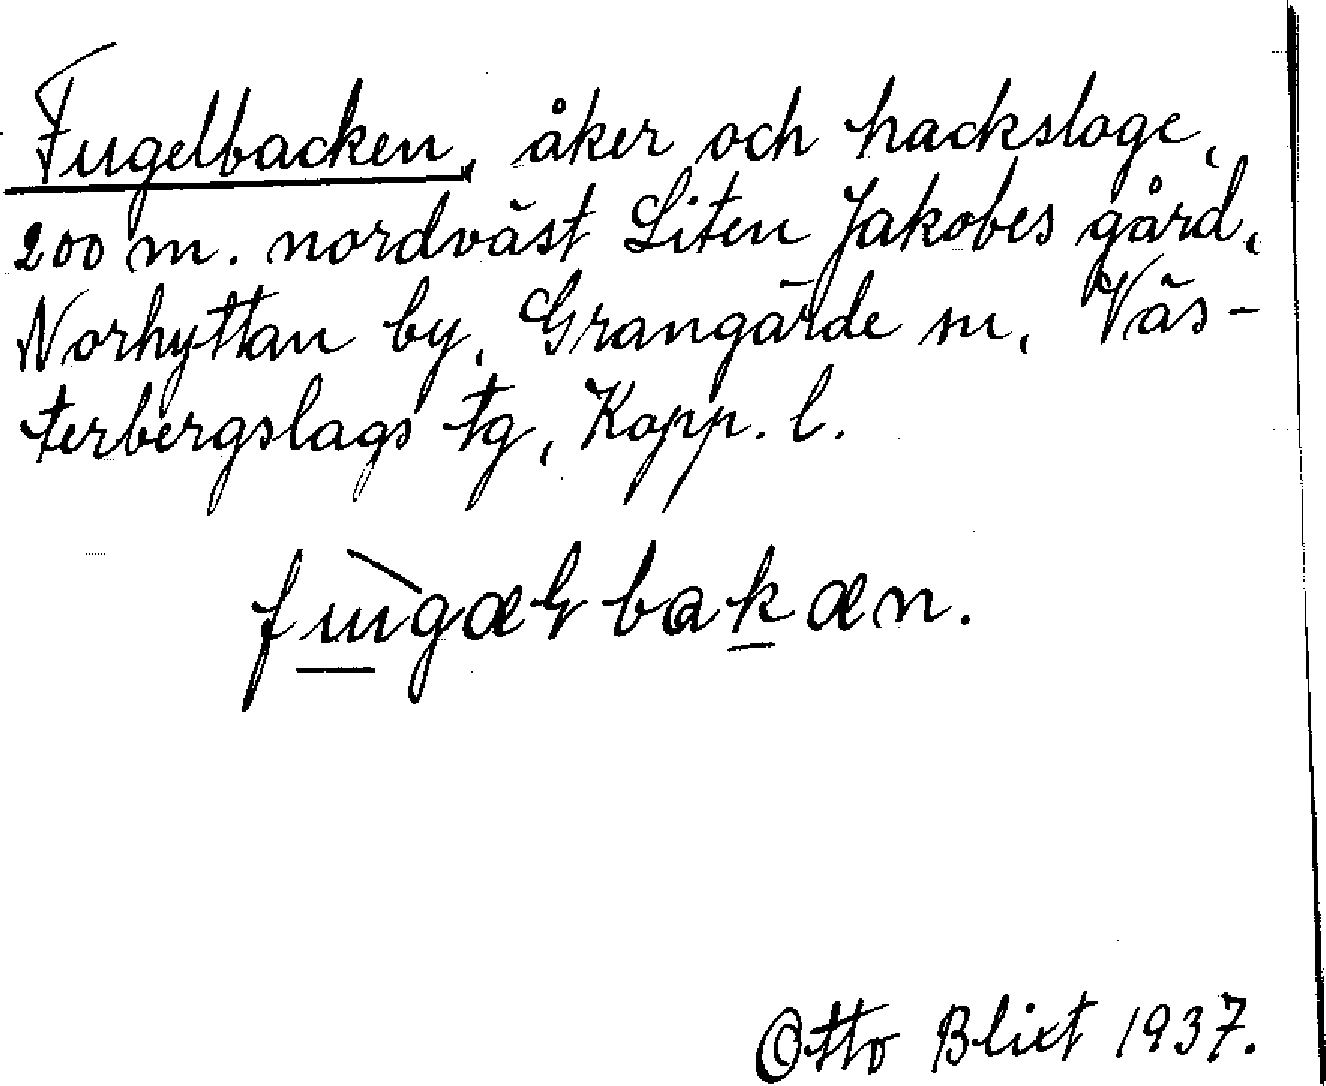 Fugelbacken, åker och hackslage,
200 m. nordväst Liten Jakobes gård,
Norhyttan by, Grangärde sn, Väs-
terbergslags tg, Kopp. l.
fùgæłbakæn.
Otto Blixt 1937.